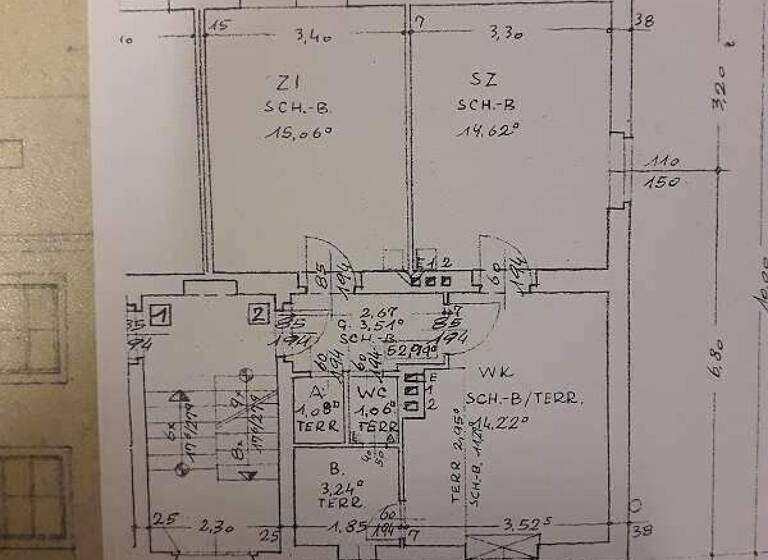 15
7
38
3,40
3,30
3,20
ZI
SCH.-B.
15,06°
SZ
SCH.-B
14.62°
110
150
E 1 2
85
194
60
194
1
2
85
194
2.67
7
G. 3.51°
SCH-B.
85
194
52,99°
60
194
60
194
6.80
A
1,08°
TERR
WC
1,06°
TERR
E
1
2
WK
SCH.-B/TERR.
14.22°
6x
17⁶/27⁹
8x
9x
17⁶/27⁹
40
50
TERR 2,95°
SCH-B. 11.27°
B.
3,24°
TERR
60
194
25
2.30
25
1.85
7
3.52⁵
38